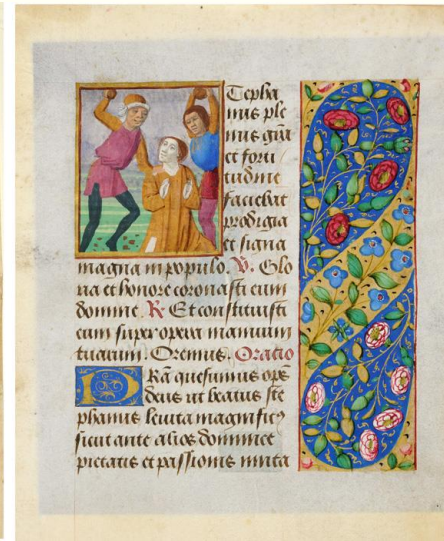 Stepha
nus ple
nus gr̄a
et forti
tudine
faciebat
prodigia
et signa
magna in populo. V̶. Glo
ria et honore coronasti eum
domine. R̶ Et constituisti
eum super opera manuum
tuarum. Oremus. Oratio
Ra quesumus om̄ps
deus ut beatus ste
phanus leuita magnificꝰ
sicut ante alios dominice
pietatis et passionis imita